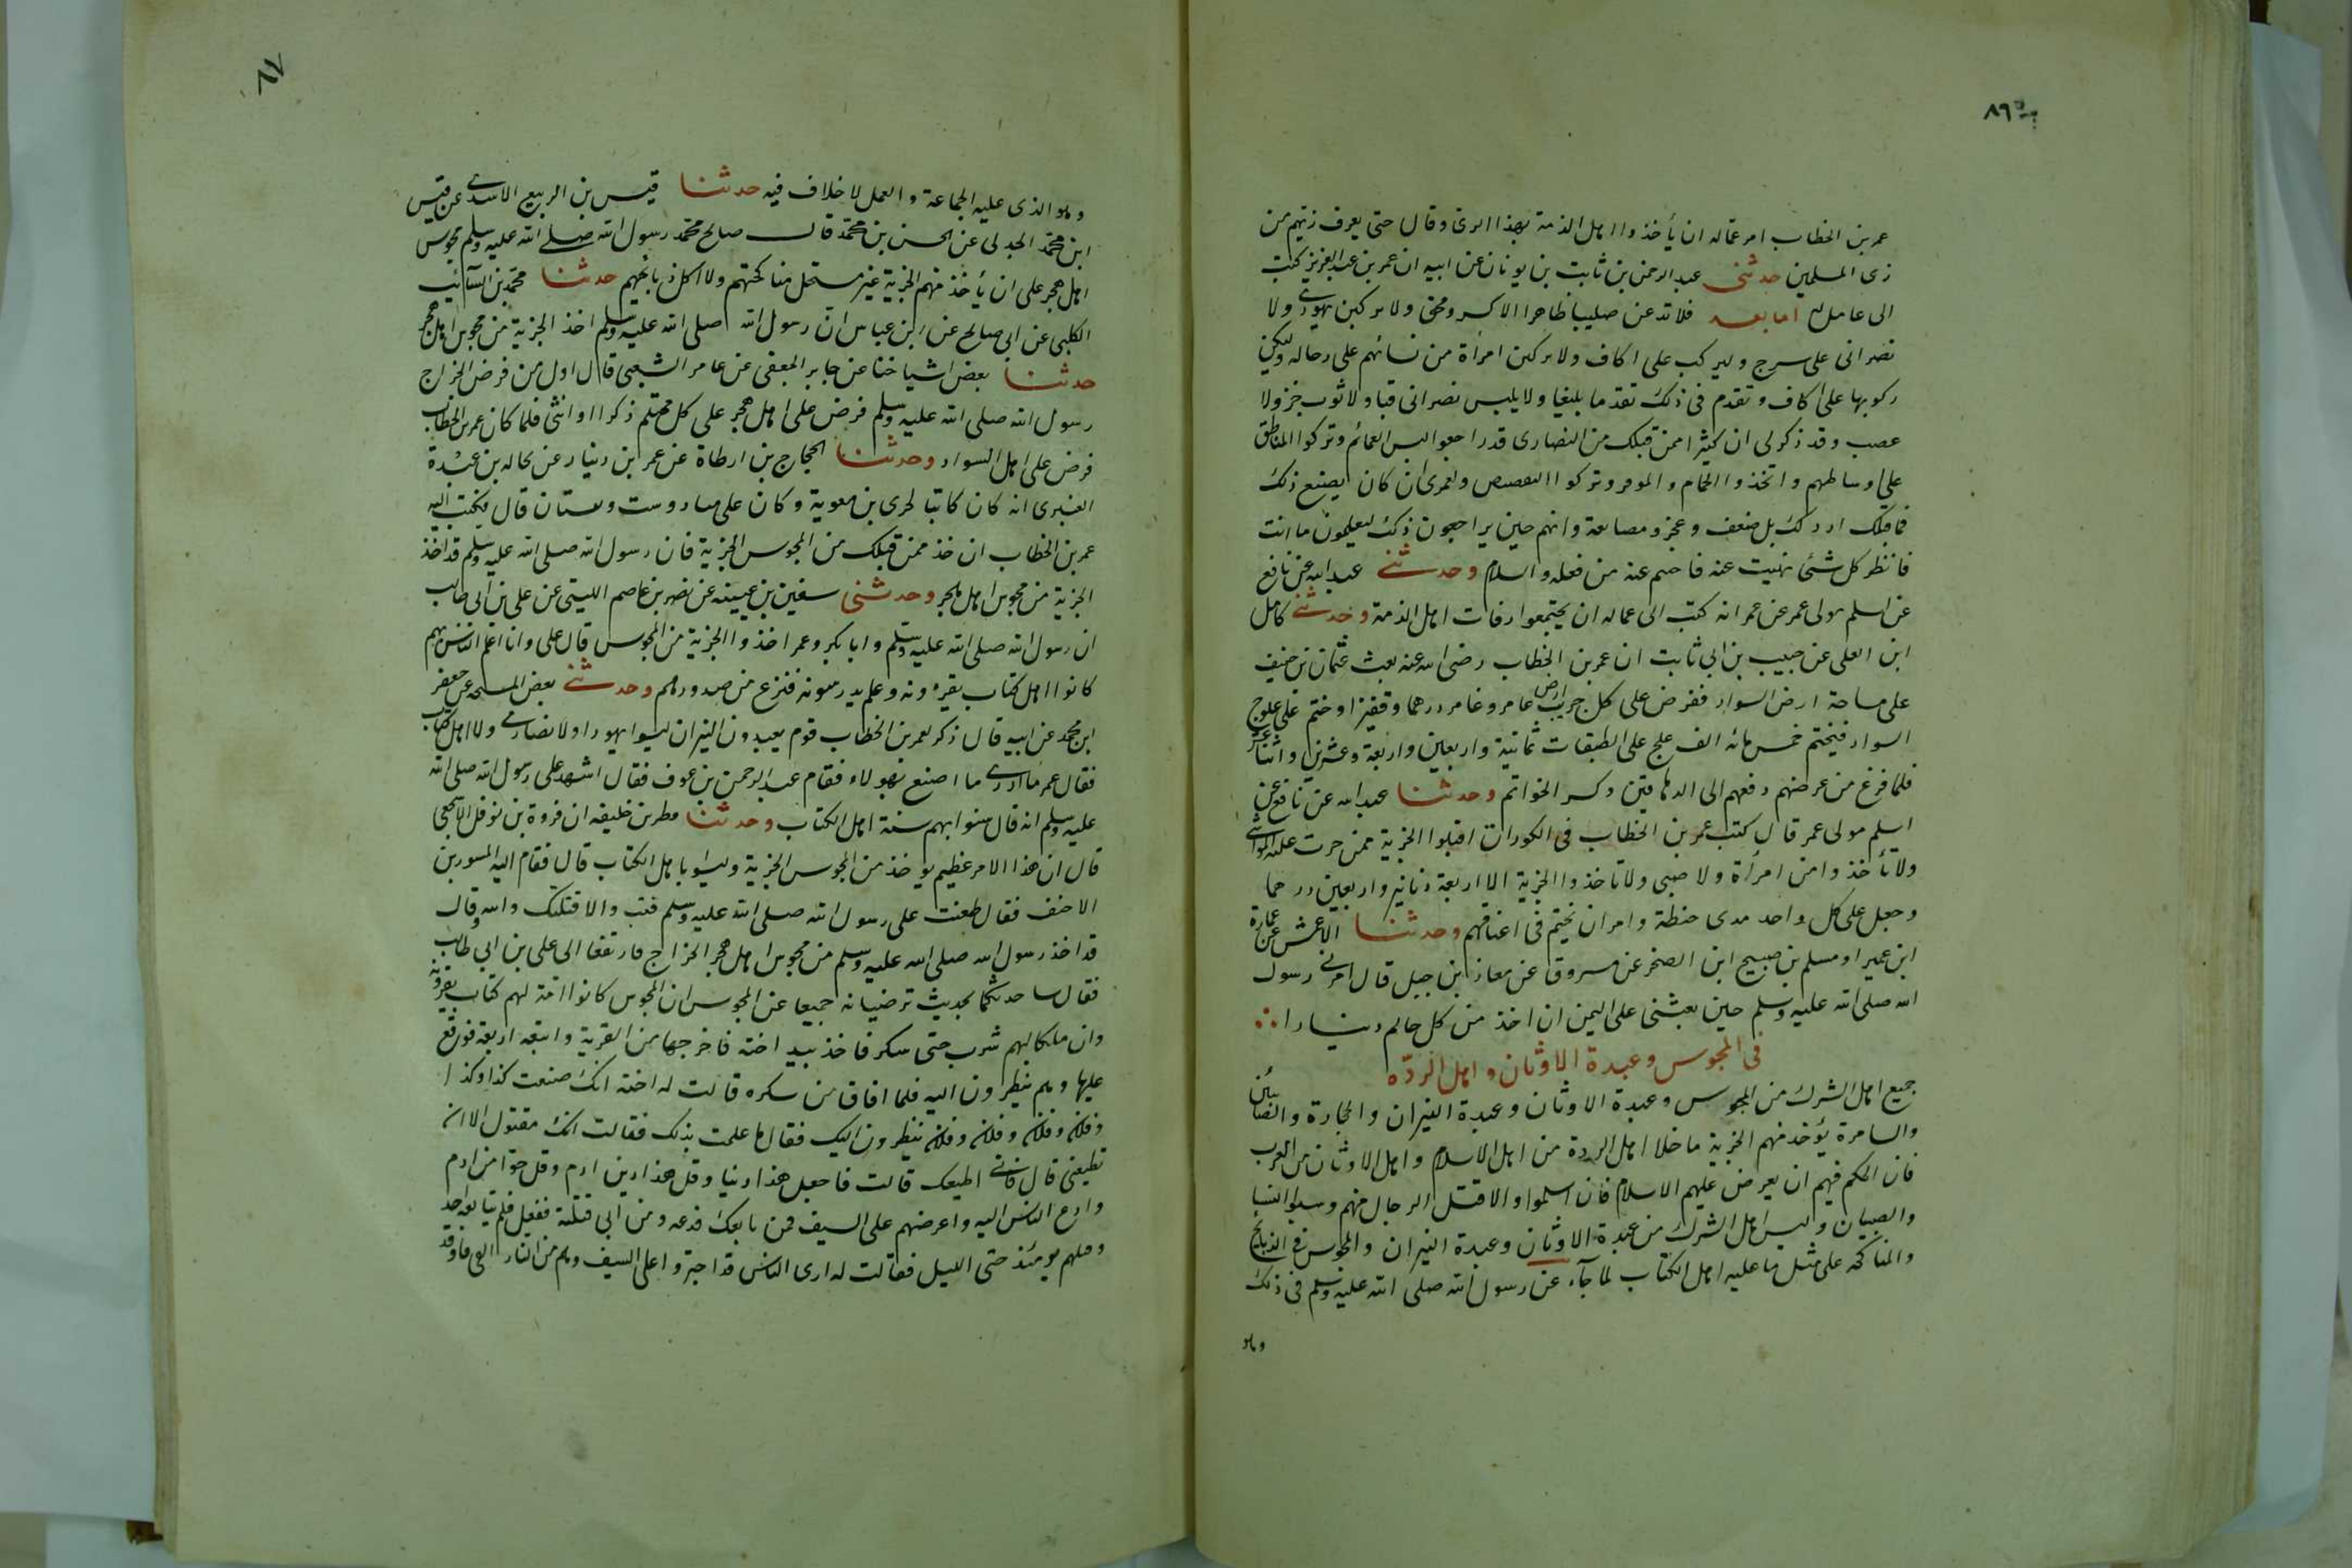 ٨٦
عمر بن الخطاب امر عماله ان يأخذوا اهل الذمة بهذا الزى وقال حتى يعرف زيهم من
زى المسلمين حدثنى عبد الرحمن بن ثابت بن يونان عن ابيه ان عمر بن عبد العزيز كتب
الى عامل له اما بعد فلا تدعن صليبا ظاهرا الا كسر ومحق ولا يركبن يهودى ولا
نصرانى على سرج وليركب على اكاف ولا يركبن امرأة من نسائهم على رحاله وليكن
ركوبها على اكاف وتقدم فى ذلك تقدما بليغا ولا يلبس نصرانى قبا ولا ثوب خز ولا
عصب وقد ذكر لى ان كثيرا ممن قبلك من النصارى قد راجعوا لبس العمائم وتركوا المناطق
على اوساطهم واتخذوا الجمام والموفر وتركوا التقصيص ولعمرى ان كان يصنع ذلك
فما قبلك ان ذلك بك ضعف وعجز ومصانعة وانهم حين يراجعون ذلك ليعلمون ما انت
فانظر كل شئ نهيت عنه فاحسم عنه من فعله والسلام وحدثنى عبيد الله عن نافع
عن اسلم مولى عمر عن عمر انه كتب الى عماله ان يختموا رقاب اهل الذمة وحدثنى كامل
ابن العلى عن حبيب بن ابى ثابت ان عمر بن الخطاب رضى الله عنه بعث عثمان بن حنيف
على مساحة ارض السواد ففرض على كل جريب ارض عامر وغامر درهما وقفيزا وختم على علوج
السواد فختم خمس مائه الف علج على الطبقات ثمانية واربعين واربعة وعشرين واثنا عشر
فلما فرغ من عرضهم دفعهم الى الدهاقين وكسر الخواتم وحدثنا عبيد الله عن نافع عن
اسلم مولى عمر قال كتب عمر بن الخطاب فى الكور ان اقبلوا الجزية ممن جرت عليه المواسى
ولا تأخذوا من امرأة ولا صبى ولا تأخذوا الجزية الا اربعة دنانير واربعين درهما
وجعل على كل واحد مدى حنطة وامر ان يختم فى اعناقهم وحدثنا الاعمش عن عمارة
ابن عمير او مسلم بن صبيح ابن الصخر عن مسروق عن معاذ ابن جبل قال امرنى رسول
الله صلى الله عليه وسلم حين بعثنى على اليمن ان اخذ من كل حالم دينارا
فى المجوس وعبدة الاوثان واهل الردّه
جميع اهل الشرك من المجوس وعبدة الاوثان وعبدة النيران والحجارة والصابئين
والسامرة يؤخذ منهم الجزية ما خلا اهل الردة من اهل الاسلام واهل الاوثان من العرب
فان الحكم فيهم ان يعرض عليهم الاسلام فان اسلموا والا قتل الرجال منهم وسبوا النسا
والصبيان وليس اهل الشرك من عبدة الاوثان وعبدة النيران والمجوس فى الذبايح
والمناكحه على مثل ما عليه اهل الكتاب لما جآء عن رسول الله صلى الله عليه وسلم فى ذلك
وهو
٨٧
وهو الذى عليه الجماعة والعمل لا خلاف فيه حدثنا قيس بن الربيع الاسدى عن قيس
ابن محمد الجدلى عن الحسن بن محمد قال صالح محمد رسول الله صلى الله عليه وسلم مجوس
اهل هجر على ان يأخذ منهم الجزية غير مستحل مناكحتهم ولا اكل ذبائحهم حدثنا محمد بن السآئب
الكلبى عن ابى صالح عن ابن عباس ان رسول الله صلى الله عليه وسلم اخذ الجزية من مجوس اهل هجر
حدثنا بعض اشياخنا عن جابر الجعفى عن عامر الشعبى قال اول من فرض الخراج
رسول الله صلى الله عليه وسلم فرض على اهل هجر على كل محتلم ذكرا او انثى فلما كان عمر بن الخطاب
فرض على اهل السواد وحدثنا الحجاج بن ارطاة عن عمر بن دينار عن بجاله بن عبدة
العنبرى انه كان كاتبا لجرى بن معوية وكان على مساد وست ومستان قال فكتب اليه
عمر بن الخطاب ان خذ ممن قبلك من المجوس الجزية فان رسول الله صلى الله عليه وسلم قد اخذ
الجزية من مجوس اهل هجر وحدثنى سفين بن عيينه عن نصر بن عاصم الليثى عن على بن ابى طالب
ان رسول الله صلى الله عليه وسلم وابا بكر وعمر اخذوا الجزية من المجوس قال على وانا اعلم الناس بهم
كانوا اهل كتاب يقرءونه وعلم يدرسونه فنزع من صدورهم وحدثنى بعض المشيخه عن جعفر
ابن محمد عن ابيه قال ذكر لعمر بن الخطاب قوم يعبدون النيران ليسوا يهودا ولا نصارى ولا اهل كتاب
فقال عمر ما ادرى ما اصنع بهولاء فقام عبد الرحمن بن عوف فقال اشهد على رسول الله صلى الله
عليه وسلم انه قال سنوا بهم سنة اهل الكتاب وحدثنا مطر بن خليفه ان فروة بن نوفل الاشجعى
قال ان هذا الامر عظيم يوخذ من المجوس الجزية وليسوا باهل الكتاب قال فقام اليه المستورد بن
الاحنف فقال طعنت على رسول الله صلى الله عليه وسلم فتب والا قتلتك والله وقال
قد اخذ رسول الله صلى الله عليه وسلم من مجوس اهل هجر الخراج فارتفعا الى على بن ابى طالب
فقال ساحدثكما بحديث ترضيانه جميعا عن المجوس ان المجوس كانوا امة لهم كتاب يقرونه
وان ملكا لهم شرب حتى سكر فاخذ بيد اخته فاخرجها من القرية واتبعه اربعة فوقع
عليها وهم ينظرون اليه فلما افاق من سكره قالت له اخته انك صنعت كذا وكذا
وفلان وفلان وفلان وفلان ينظرون اليك فقال ما علمت بذلك فقالت انك مقتول الا ان
تطيعنى قال فانى اطيعك قالت فاجعل هذا دينا وقل هذا دين ادم وقل حوّا من ادم
وادع الناس اليه واعرضهم على السيف فمن بايعك فدعه ومن ابى قتلته ففعل فلم يتابعه احد
وقتلهم يومئذ حتى الليل فقالت له ارى الناس قد اجتروا على السيف وهم من النار الفى فاوقد